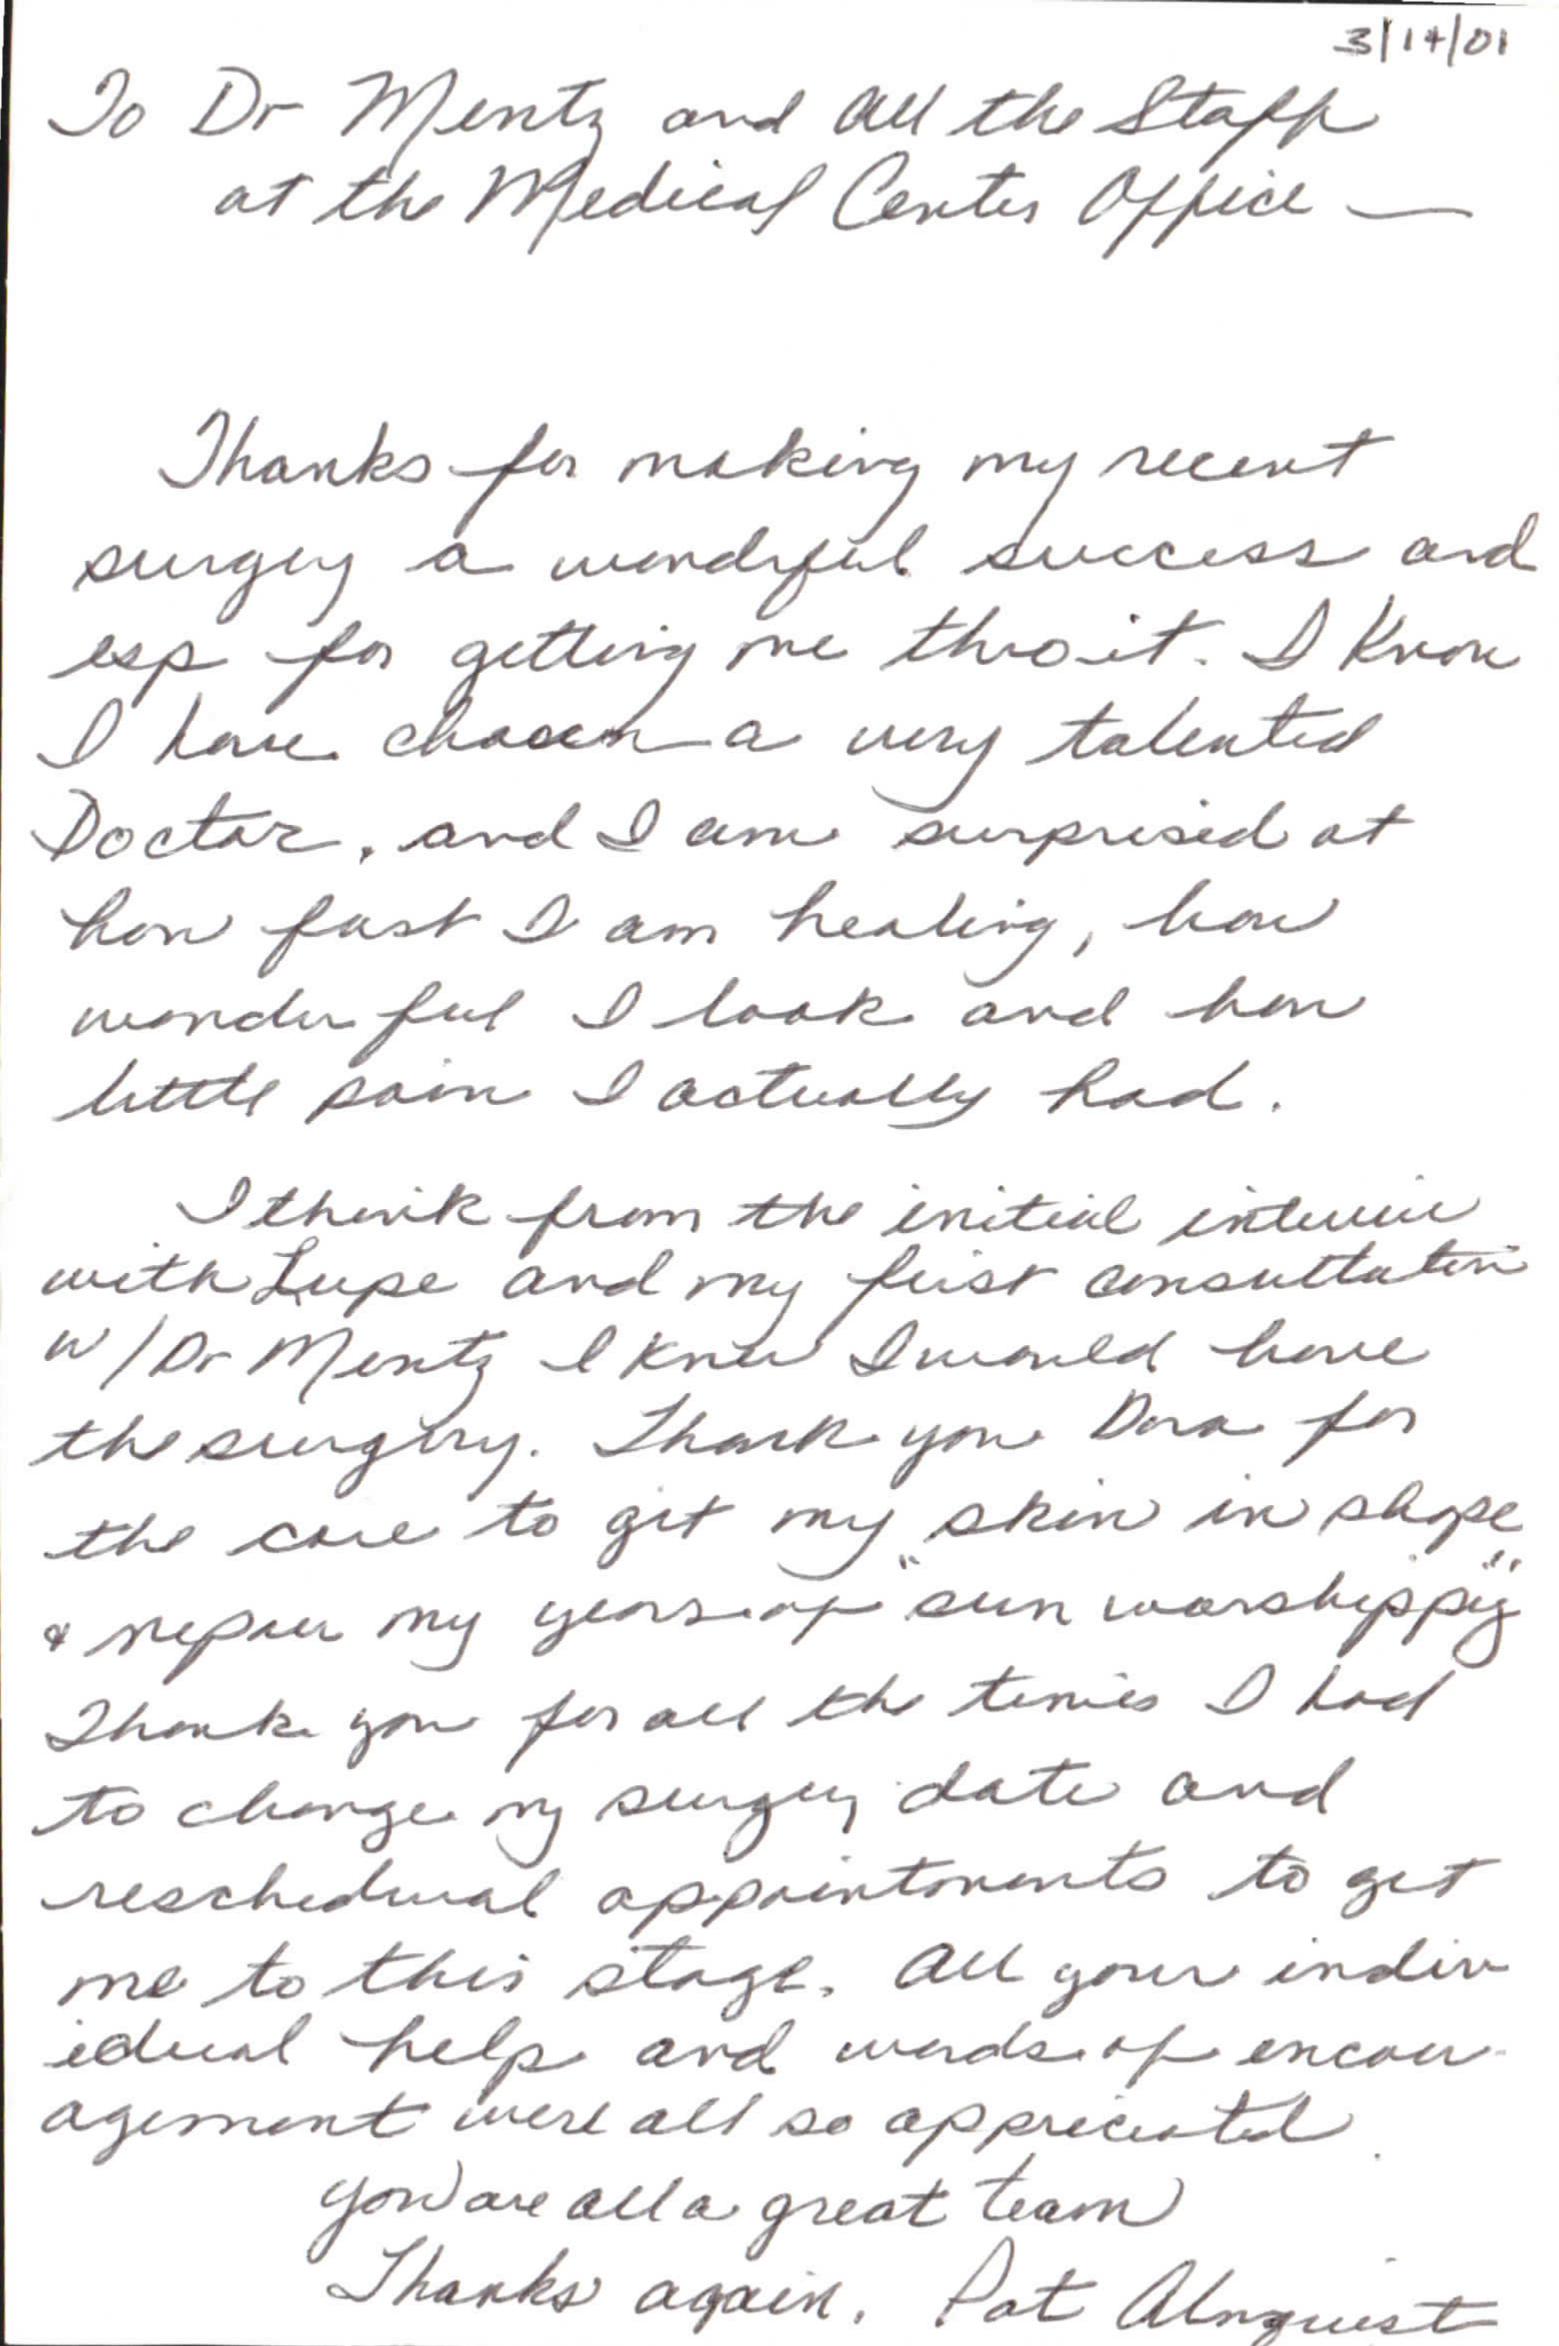 3/14/01
To Dr Mentz and All the Staff
at the Medical Center Office —
Thanks for making my recent
surgery a wonderful success and
esp for getting me thro it. I Know
I have chosen a very talented
Doctor, and I am surprised at
how fast I am healing, how
wonderful I look and how
little pain I actually had.
I think from the initial interview
with Lupe and my first consultation
w/ Dr Mentz I knew I would have
the surgery. Thank you Dora for
the care to get my skin in shape
& repair my years of "sun worshipping"
Thank you for all the times I had
to change my surgery date and
reschedual appointments to get
me to this stage. All your indiv
idual help and words of encour-
agement were all so appreciated.
You are all a great team
Thanks again. Pat Almquist